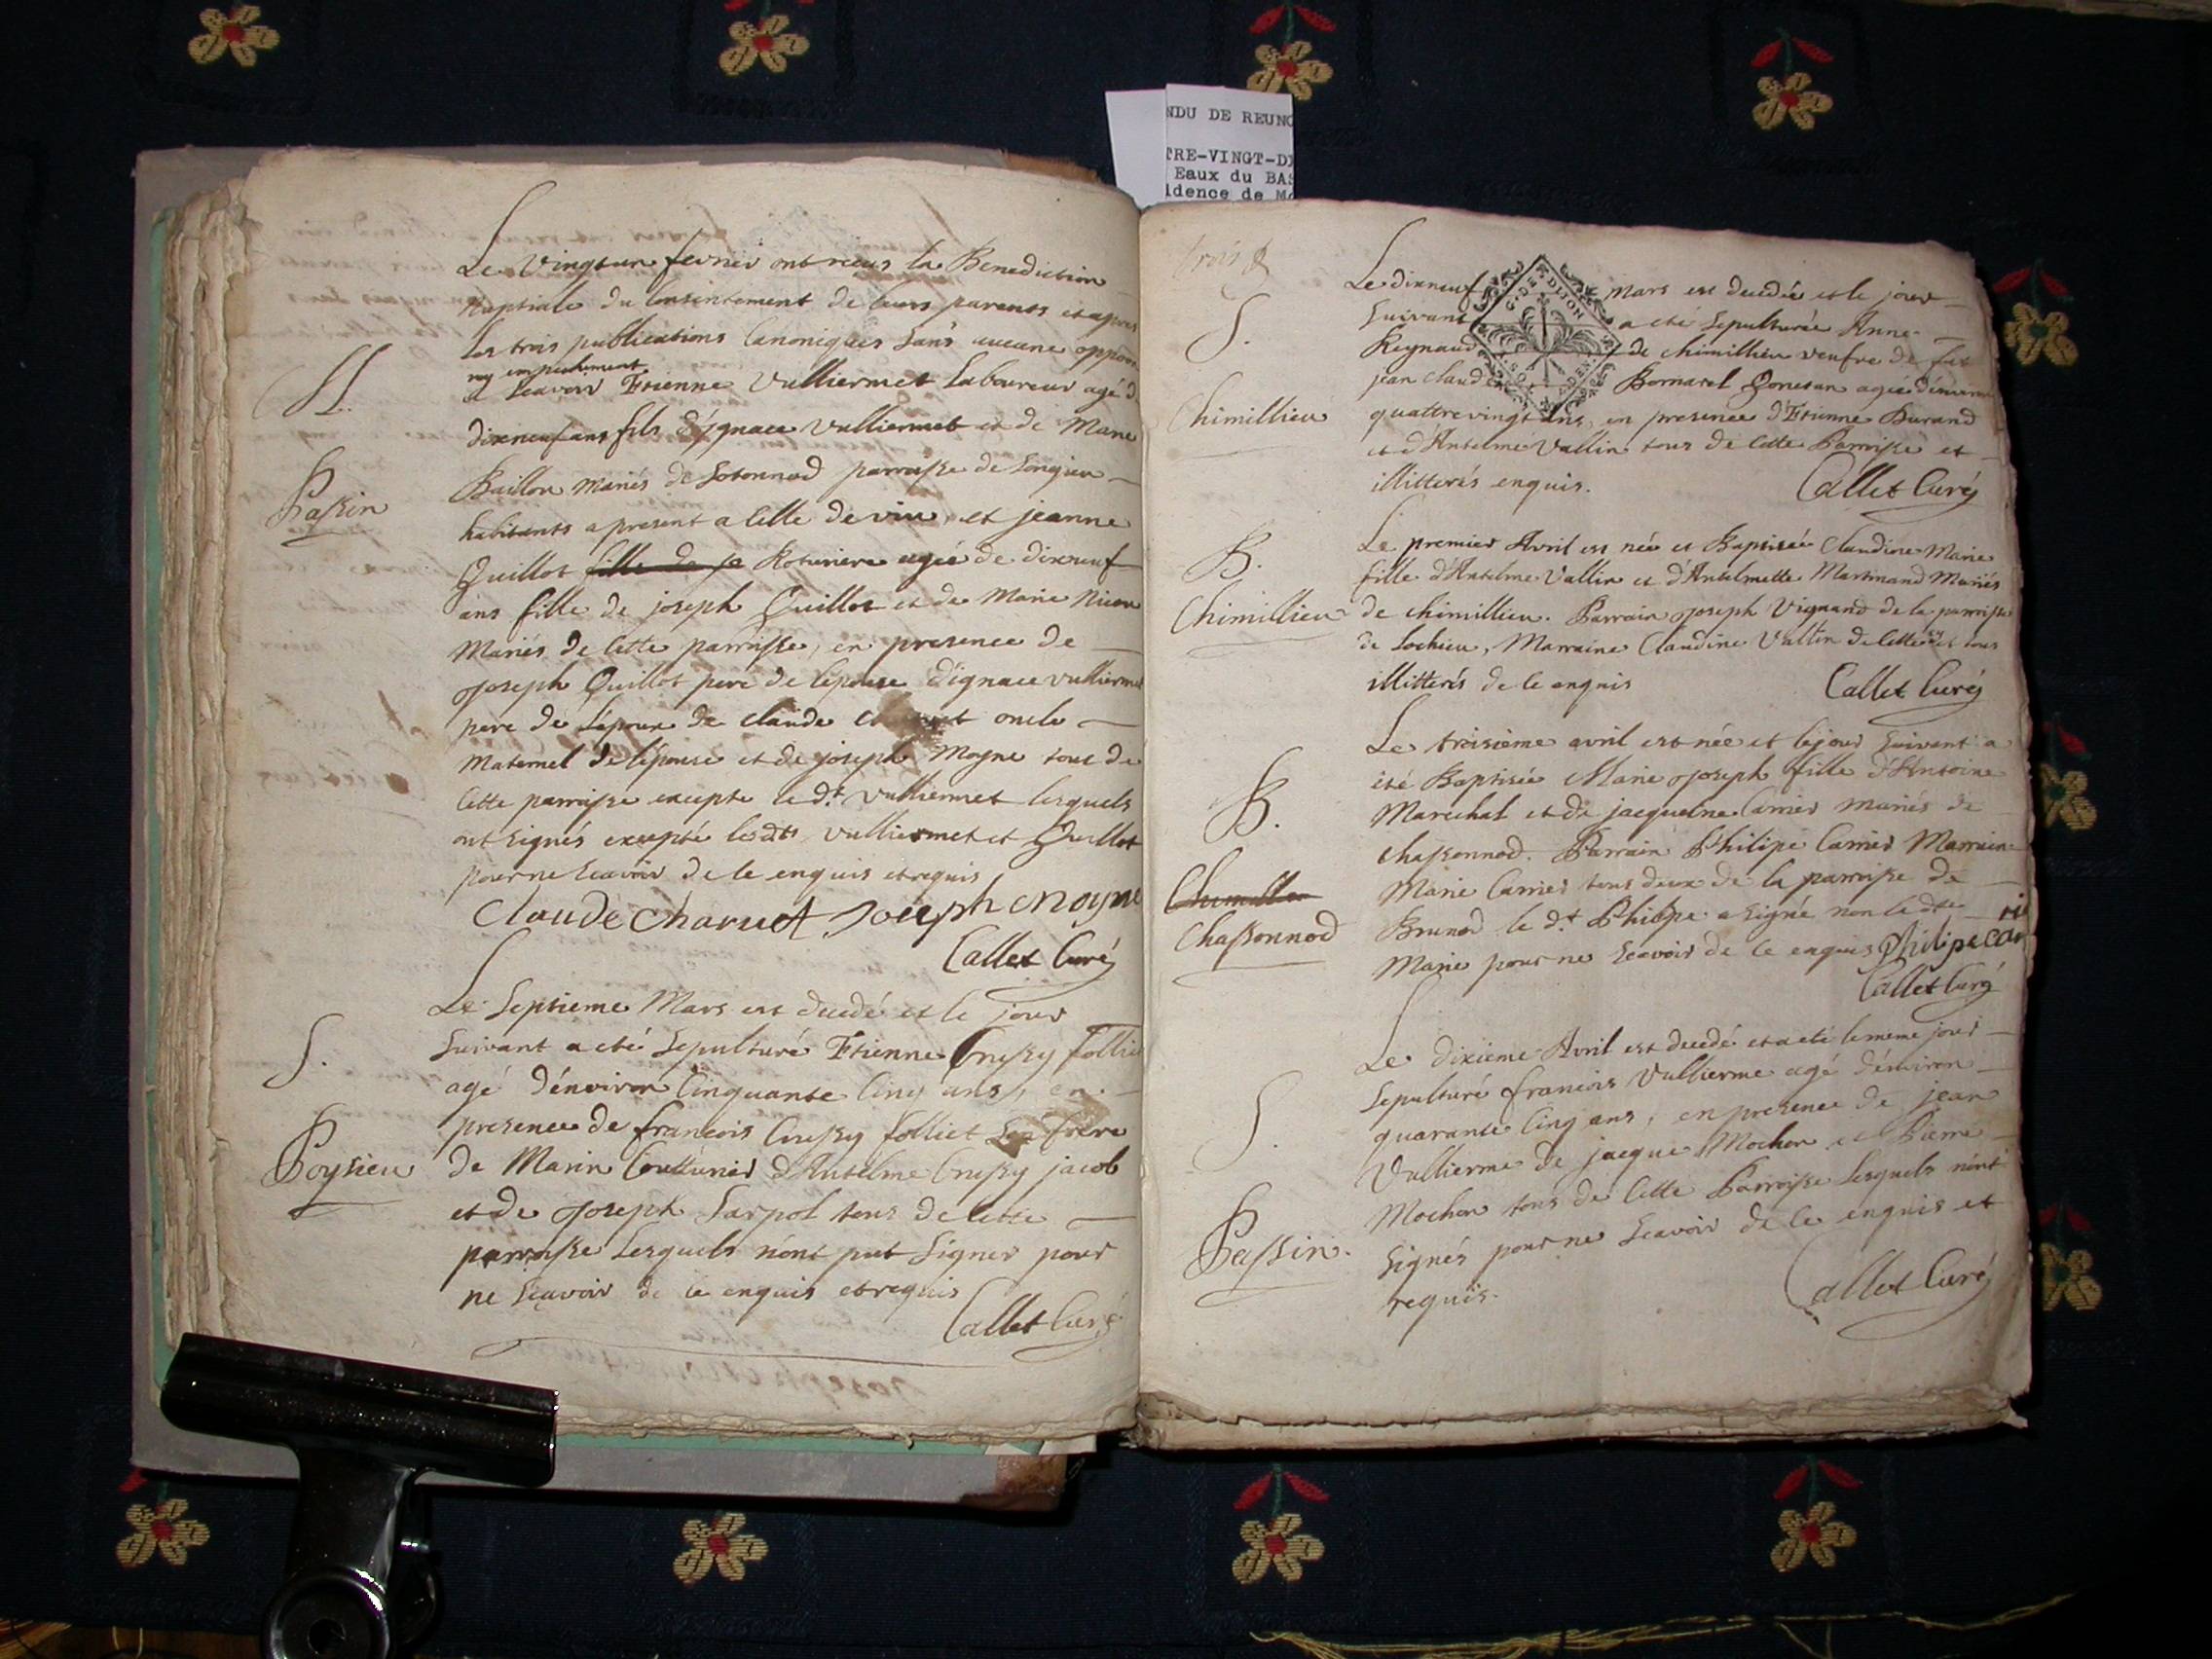 NDU DE REUNO
TRE-VINGT-DI
Eaux du BAS
idence de Mo
Le vingtun fevrier ont reçus la Benediction
Nuptiale du Consentement de leurs parents et apres
les trois publications Canoniques sans aucune opposi
ny empechement
Scavoir Etienne Vulliermet Laboureur agé d
dixneuf ans fils d'ignace Vulliermet et de Marie
Baillon mariés de Sotonnod parroisse de Songieu
habitants a present a Cette de vin et jeanne
Quillot fille de je Roturiere agée de dixneuf
ans fille de joseph Quillot et de Marie
Mariés de Cette parroisse, en presence de
joseph Quillot pere de l'epouse d'ignace vulliermet
pere de l'epoux de claude oncle
Maternel de l'epouse et de joseph Moyne tous de
Cette parroisse excepte le dt. Vulliermet lesquels
ont signés excepté lesdts Vulliermet et Quillot
pour ne scavoir de ce enquis et requis
M.
Passin
Claude Charvet Joseph Moyne
Callet Curé
Le Septieme Mars est decedé et le jour
Suivant a eté Sepulturé Etienne Crussy folliet
agé d'environ Cinquante Cinq ans, en
presence de francois Crussy folliet Son frere
de Marin Coutturier d'Antelme Crussy jacob
et de joseph Sarpol tous de cette
parroisse Lesquels n'ont put Signer pour
ne Sçavoir de ce enquis et requis
S.
Poysieu
Callet Curé
trois
G. DE DIJON
Le dixneuf mars est decedée et le jour
Suivant a eté Sepulturée Anne
Reynaud de Chimillieu veufve de fut
jean claude Bornarel agée d'environ
quattrevingt ans, en presence d'Etienne Durand
et d'Antelme Vallin tous de Cette Parroisse et
illitterés enquis.
S.
Chimillieu
Callet Curé
Le premier Avril est née et Baptisée Claudine Marie
fille d'Antelme Vallin et d'Antelmette Martinand Mariés
de Chimillieu. Parrain joseph Vignand de la parroisse
de Lochieu, Marraine Claudine Vallin de Cette cy et tous
illitterés de ce enquis
B.
Chimillieu
Callet Curé
Le troisième avril est née et le jour Suivant a
eté Baptisée Marie joseph fille d'Antoine
Marechal et de jacqueline Carrier mariés de
Chassonnod. Parrain Philipe Carrier Marraine
Marie Carrier tous deux de la parroisse de
Brunod le dt. Philipe a signé non ladte
Marie pour ne Scavoir de ce enquis Philipe Carri
B.
Chassonnod
Callet Curé
Le dixieme Avril est decedé et a eté le meme jour
Sepulturé francois Vullierme agé d'environ
quarante Cinq ans, en presence de jean
Vullierme de jacque Mochon et Pierre
Mochon tous de Cette Parroisse Lesquels n'ont
Signés pour ne Scavoir de ce enquis et
requis.
S.
Passin.
Callet Curé